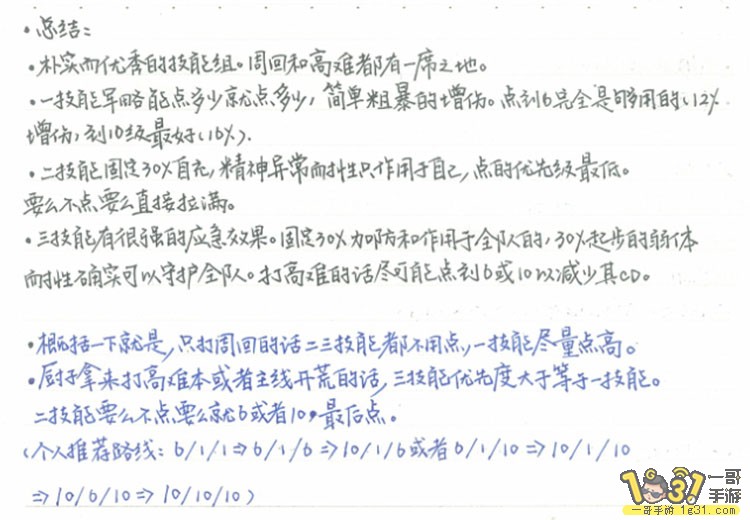 ·总结:
·朴实而优秀的技能组。周回和高难都有一席之地。
·一技能军略能点多少就点多少,简单粗暴的增伤。点到6完全是够用的(12%
增伤,到10级最好(16%).
·二技能固定30%自充,精神异常耐性只作用于自己,点的优先级最低。
要么不点要么直接拉满。
·三技能有很强的应急效果。固定30%加防和作用于全队的,30%起步的弱体
耐性确实可以守护全队。打高难的话尽可能点到6或10以减少其CD。
·概括一下就是,只打周回的话二三技能都不用点,一技能尽量点高。
·厨子拿来打高难本或者主线开荒的话,三技能优先度大于等于一技能。
二技能要么不点要么就6或者10,最后点。
(个人推荐路线:6/1/1⇒6/1/6⇒10/1/6或者6/1/10⇒10/1/10
⇒10/6/10⇒10/10/10)
1931 一哥手游
一哥手游 1g31.com